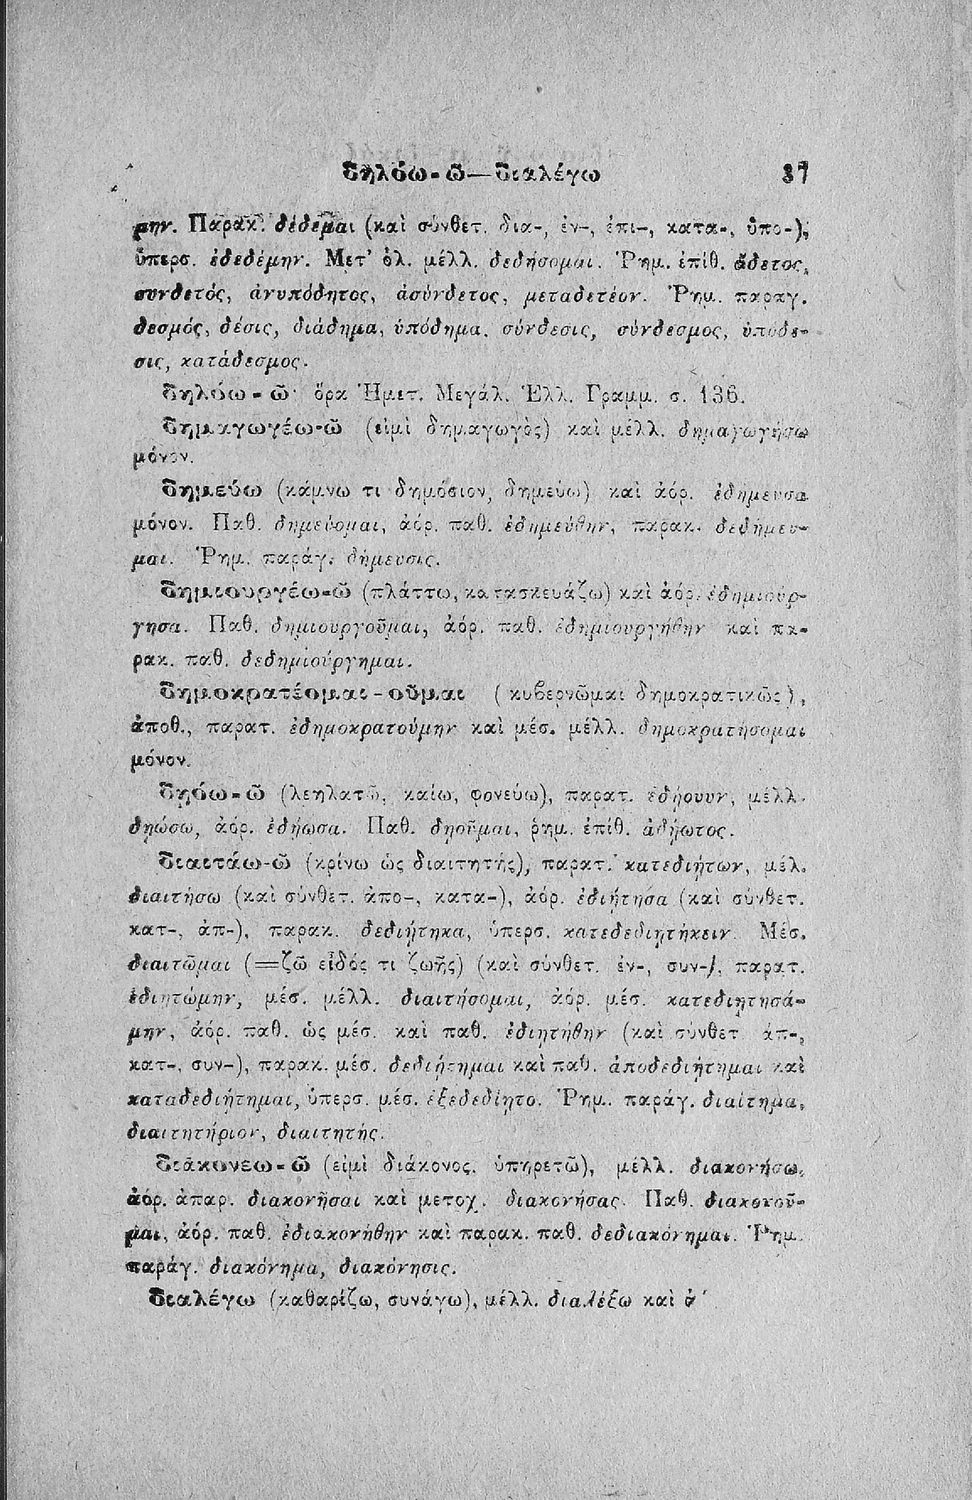 δηλόω-ῶ—διαλέγω 37
μην. Παρακ. δέδεμαι (καὶ σύνθετ. δια-, ἐν-, ἐπι-, κατα-, ὑπο-),
ὑπερσ. ἐδεδέμην. Μετ' ὀλ. μέλλ. δεδήσομαι. Ῥημ. ἐπίθ. ἄδετος,
συνδετός, ἀνυπόδητος, ἀσύνδετος, μεταδετέον. Ῥημ. παραγ.
δεσμός, δέσις, διάδημα, ὑπόδημα, σύνδεσις, σύνδεσμος, ὑπόδε-
σις, κατάδεσμος.
δηλόω-ῶ· ὅρα Ἡμετ. Μεγάλ. Ἑλλ. Γραμμ. σ. 136.
δημαγωγέω-ῶ (εἰμὶ δημαγωγὸς) καὶ μέλλ. δημαγωγήσω
μόνον.
δημεύω (κάμνω τι δημόσιον, δημεύω) καὶ ἀόρ. ἐδήμευσα
μόνον. Παθ. δημεύομαι, ἀόρ. παθ. ἐδημεύθην, παρακ. δεδήμευ-
μαι. Ῥημ. παράγ. δήμευσις.
δημιουργέω-ῶ (πλάττω, κατασκευάζω) καὶ ἀόρ. ἐδημιούρ-
γησα. Παθ. δημιουργοῦμαι, ἀόρ. παθ. ἐδημιουργήθην καὶ πα-
ρακ. παθ. δεδημιούργημαι.
δημοκρατέομαι-οῦμαι (κυβερνῶμαι δημοκρατικῶς),
ἀποθ., παρατ. ἐδημοκρατούμην καὶ μέσ. μέλλ. δημοκρατήσομαι
μόνον.
δῃόω-ῶ (λεηλατῶ, καίω, φονεύω), παρατ. ἐδῄουν, μέλλ.
δῃώσω, ἀόρ. ἐδῄωσα. Παθ. δῃοῦμαι, ῥημ. ἐπίθ. ἀδῄωτος.
διαιτάω-ῶ (κρίνω ὡς διαιτητής), παρατ. κατεδιῄτων, μέλ.
διαιτήσω (καὶ σύνθετ. ἀπο-, κατα-), ἀόρ. ἐδιῄτησα (καὶ σύνθετ.
κατ-, ἀπ-), παρακ. δεδιῄτηκα, ὑπερσ. κατεδεδιῃτήκειν. Μέσ.
διαιτῶμαι (=ζῶ εἶδός τι ζωῆς) (καὶ σύνθετ. ἐν-, συν-), παρατ.
ἐδιῃτώμην, μέσ. μέλλ. διαιτήσομαι, ἀόρ. μέσ. κατεδιῃτησά-
μην, ἀόρ. παθ. ὡς μέσ. καὶ παθ. ἐδιῃτήθην (καὶ σύνθετ ἀπ-,
κατ-, συν-), παρακ. μέσ. δεδιῄτημαι καὶ παθ. ἀποδεδιῄτημαι καὶ
καταδεδιῄτημαι, ὑπερσ. μέσ. ἐξεδεδιῄτο. Ῥημ. παράγ. διαίτημα,
διαιτητήριον, διαιτητής.
διακονέω-ῶ (εἰμὶ διάκονος, ὑπηρετῶ), μέλλ. διακονήσω,
ἀόρ. ἀπαρ. διακονῆσαι καὶ μετοχ. διακονήσας. Παθ. διακονοῦ-
μαι, ἀόρ. παθ. ἐδιακονήθην καὶ παρακ. παθ. δεδιακόνημαι. Ῥημ.
παράγ. διακόνημα, διακόνησις.
διαλέγω (καθαρίζω, συνάγω), μέλλ. διαλέξω καὶ